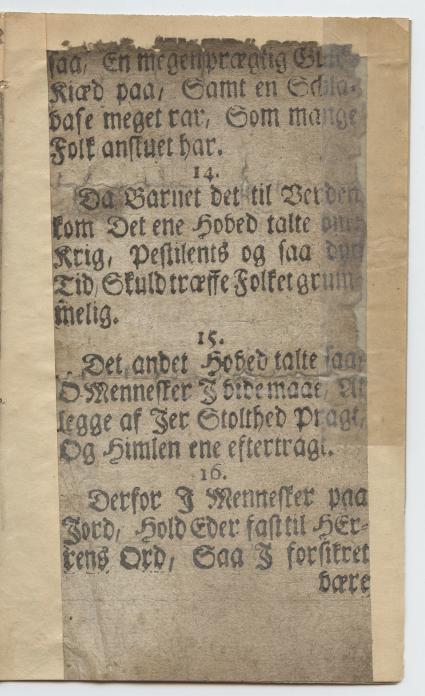 saa, En megen prægtig Guld-
Kiæd paa, Samt en Schla-
base meget rar, Som mange
Folk anskuet har.
14.
Da Barnet det til Verden
kom Det ene Hoved talte om
Krig, Pestilents og saa dyr
Tid, Skuld træffe Folket grum-
melig.
15.
Det andet Hoved talte saa,
O Mennesker I vide maae, At
legge af Jer Stolthed Pragt,
Og Himlen ene eftertragt.
16.
Derfor I Mennesker paa
Jord, Hold Eder fast til HEr-
rens Ord, Saa I forsikret
være